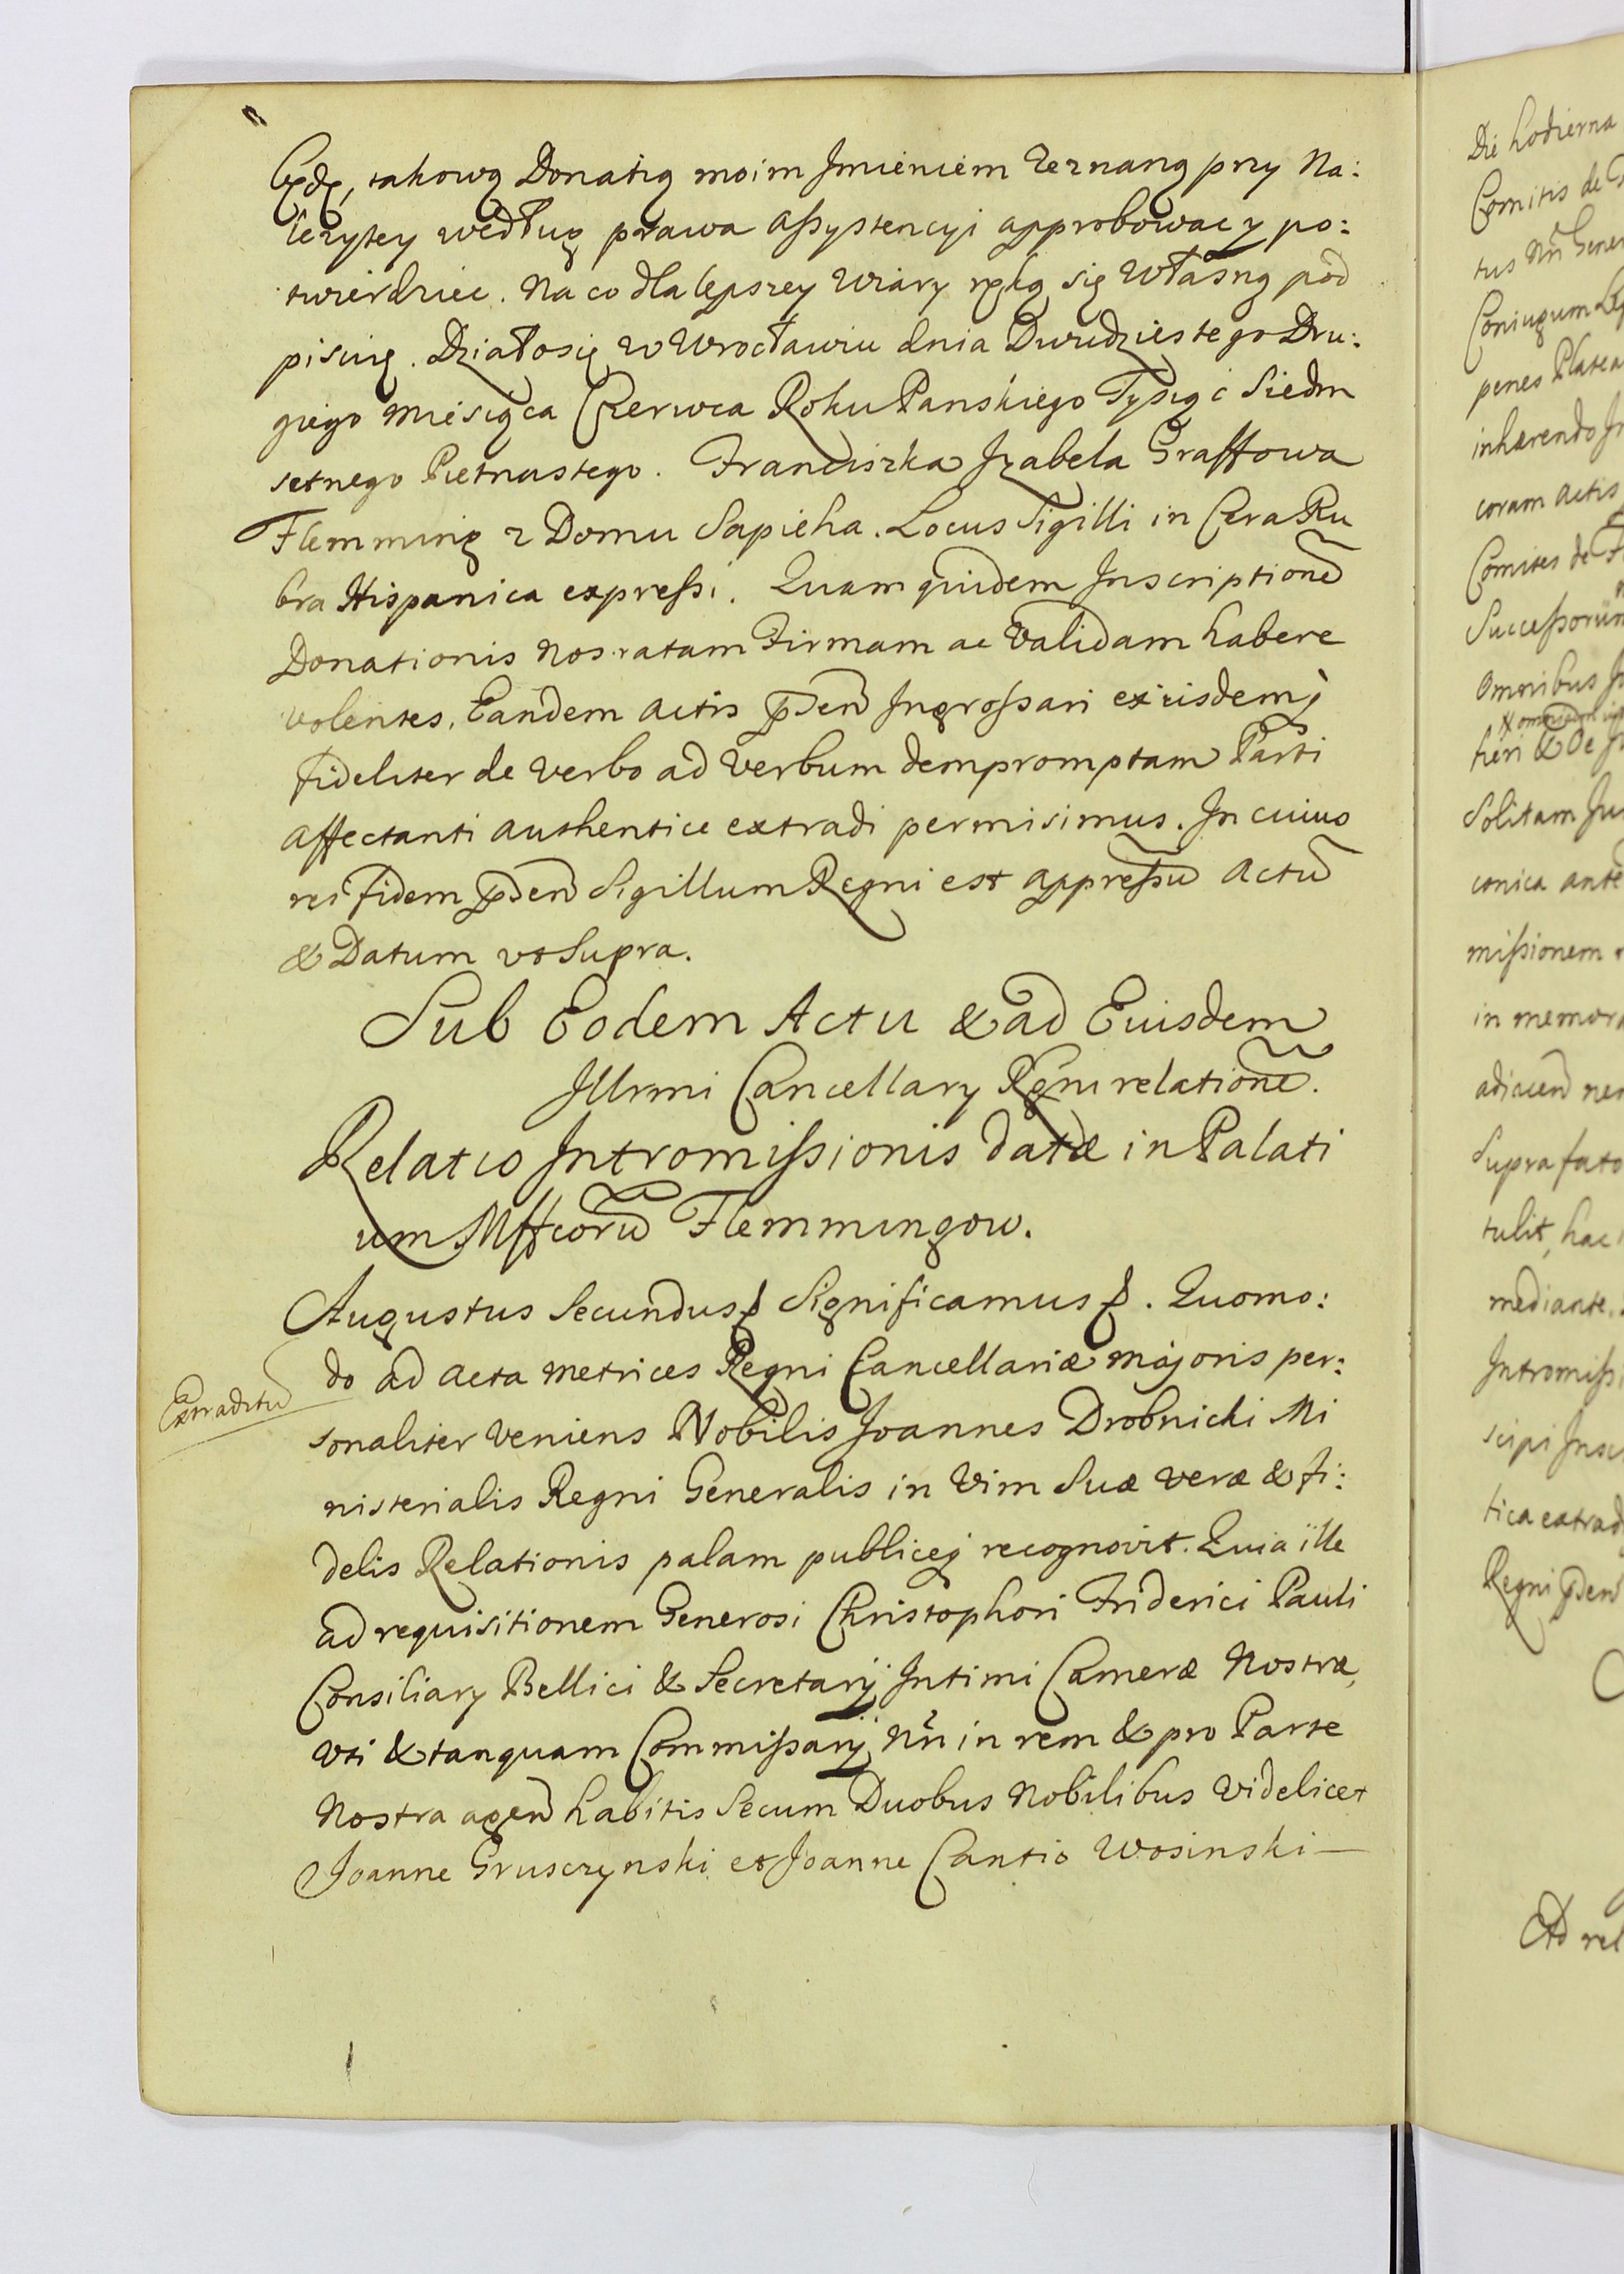 będę, takową Donatią moim Jmieniem zeznaną przy Na:
leżytey według prawa assystencyi approbować y po:
twierdzić. Na co dla lepszey Wiary ręką się Własną pod
pisuię. Działo się w Wrocławiu dnia Dwudziestego Dru:
giego Miesiąca Czerwca Roku Panskiego Tysiąć Siedm
setnego Pietnastego. Franciszka Jzabela Graffowa
Flemming z Domu Sapieha. Locus Sigilli in Cera Ru
bra Hispanica expressi. Quam quidem Jnscriptione͂
Donationis Nos ratam Firmam ac Validam habere
volentes, Eandem Actis p͞den͂ Jngrossari ex iisdemq́
fideliter de verbo ad verbum dempromptam Parti
affectanti authentice extradi permisimus. Jn cuius
rei fidem p͞den͂ Sigillum Regni est appressu͂ Actu͂
& Datum vt Supra.
Sub Eodem Actu & ad Euisdem
Jllrmi Cancellary Rg̃ni relatione͂.
Relatio Jntromissionis datæ in Palati
um Mffcoru͂ Flemmingow.
Augustus Secundus ꝭ Significamus ꝭ. Quomo:
do ad Acta Metrices Regni Cancellariæ Majoris per:
Extraditu͂
sonaliter veniens Nobilis Joannes Drobnicki Mi
nisterialis Regni Generalis in Vim Suæ veræ & fi:
delis Relationis palam publiceq́ recognovit. Quia ille
ad requisitionem Generosi Christophori Friderici Pauli
Consiliary Bellici & Secretarij Jntimi Cameræ Nostræ,
vti & tanquam Commissarij Nr̃i in rem & pro Parte
Nostra agen͂ habitis Secum Duobus Nobilibus videlicet
Joanne Grusczynski et Joanne Cantio Wosinski —
Die hodierna
Comitis de
tus Nr̃i Gener
Coniugum Leg
penes Platea
inhærendo Jn
coram Actis
Comites de
Successorum
Omnibus
Solitam Jur
conica ante
missionem
in memor
adiacen͂
Supra fato
tulit, hac
mediante.
Jntromissi
scipi Jnscr
tica extrad
Regni p͞den͂
Ad rel